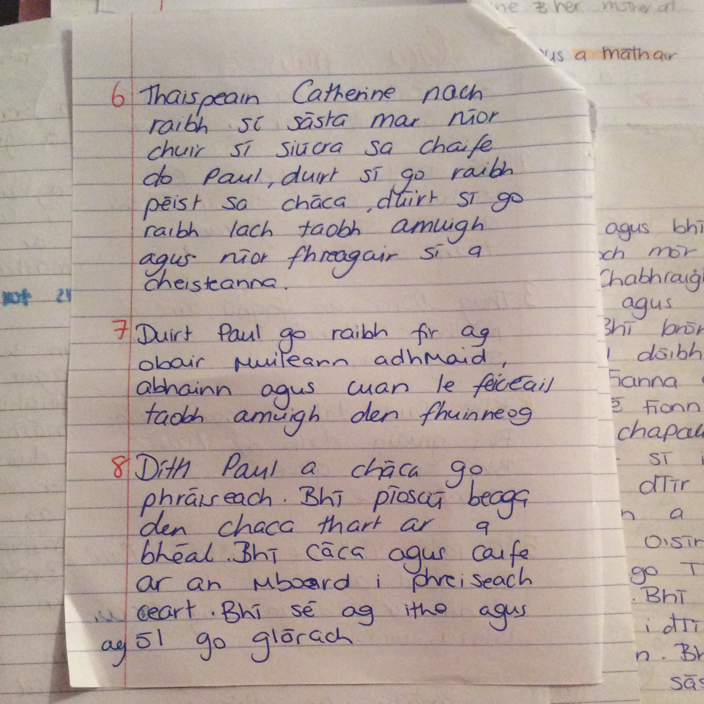 ne & her mother at
us a máthair
6 Thaispeain Catherine nach
raibh sí sásta mar níor
chuir sí siúcra sa chaife
do Paul, duirt sí go raibh
péist sa cháca, dúirt sí go
raibh lach taobh amuigh
agus níor fhreagair sí a
cheisteanna.
7 Duirt Paul go raibh fir ag
obair muileann adhmaid,
abhainn agus cuan le féicéail
taobh amuigh den fhuinneog
8 Díth Paul a cháca go
phráiseach. Bhí píosaí beaga
den chaca thart ar a
bhéal. Bhí cáca agus caife
ar an mboard i phreiseach
ceart. Bhí sé ag ithe agus
ag ól go glórach
agus bhí
ch mór
Chabhraigh
agus
Bhí brón
dóibh
Fianna
Fionn
chapall
sí
dTír
n a
Oisín
go T
Bhí
i dTí
n. Bh
sás